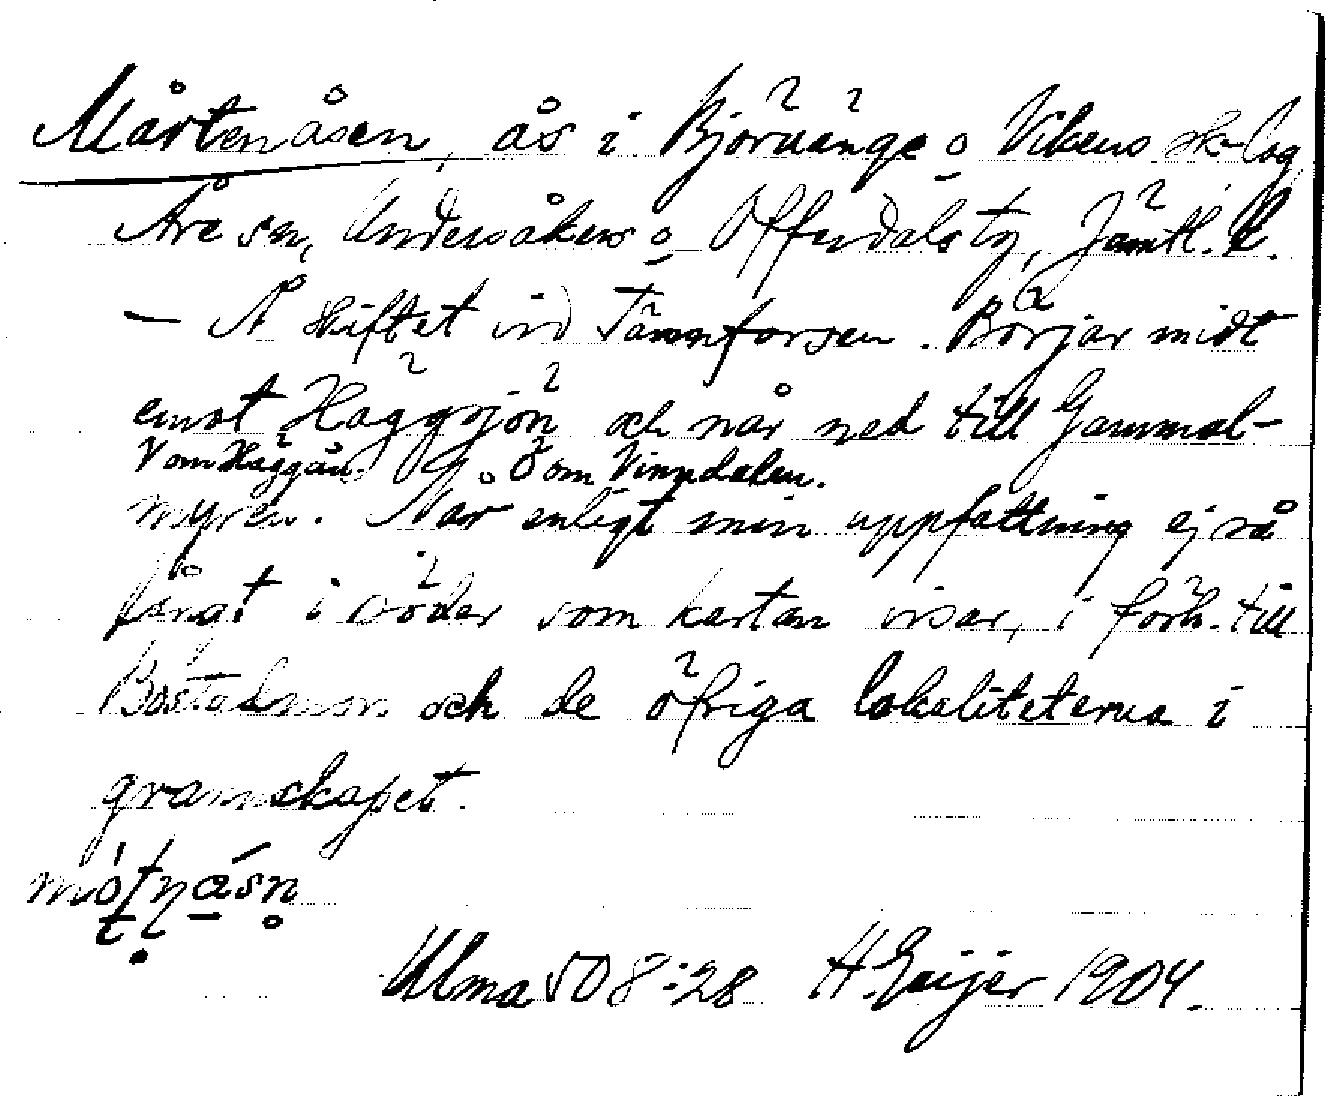 Mårtenåsen, ås i Björnänge o Vikens sk-lag
Åre sn, Undersåkers o Offerdals tg, Jämtl. l.
— Å skiftet vid Tännforsen. Börjar midt
emot Häggsjön och når ned till Gammal-
V om Häggån. O om Vinndalen.
myren. Når enligt min uppfattning ej så
långt i söder som kartan visar, i förh. till
och de öfriga lokaliteterna i
grannskapet.
Ulma 508:28 H. Geijer 1904.